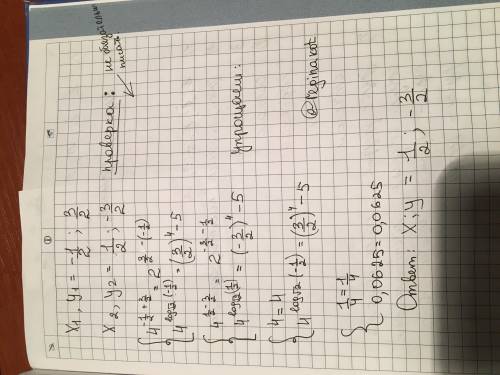 x₁, y₁ = -1/2 ; 3/2
x₂, y₂ = 1/2 ; -3/2
проверка: не обязательно
писать
{ 4^(-1/2 + 3/2) = 2^(3/2 - (-1/2))
4^(log√2(-1/2)) = (3/2)^4 - 5
{ 4^(1/2 - 3/2) = 2^(-3/2 - 1/2)
4^(log√2(1/2)) = (-3/2)^4 - 5 упрощаем:
{ 4 = 4
4^(log√2(-1/2)) = (3/2)^4 - 5
@reginakot
{ 1/4 = 1/4
0,0625 = 0,0625
Ответ: x;y = 1/2 ; -3/2